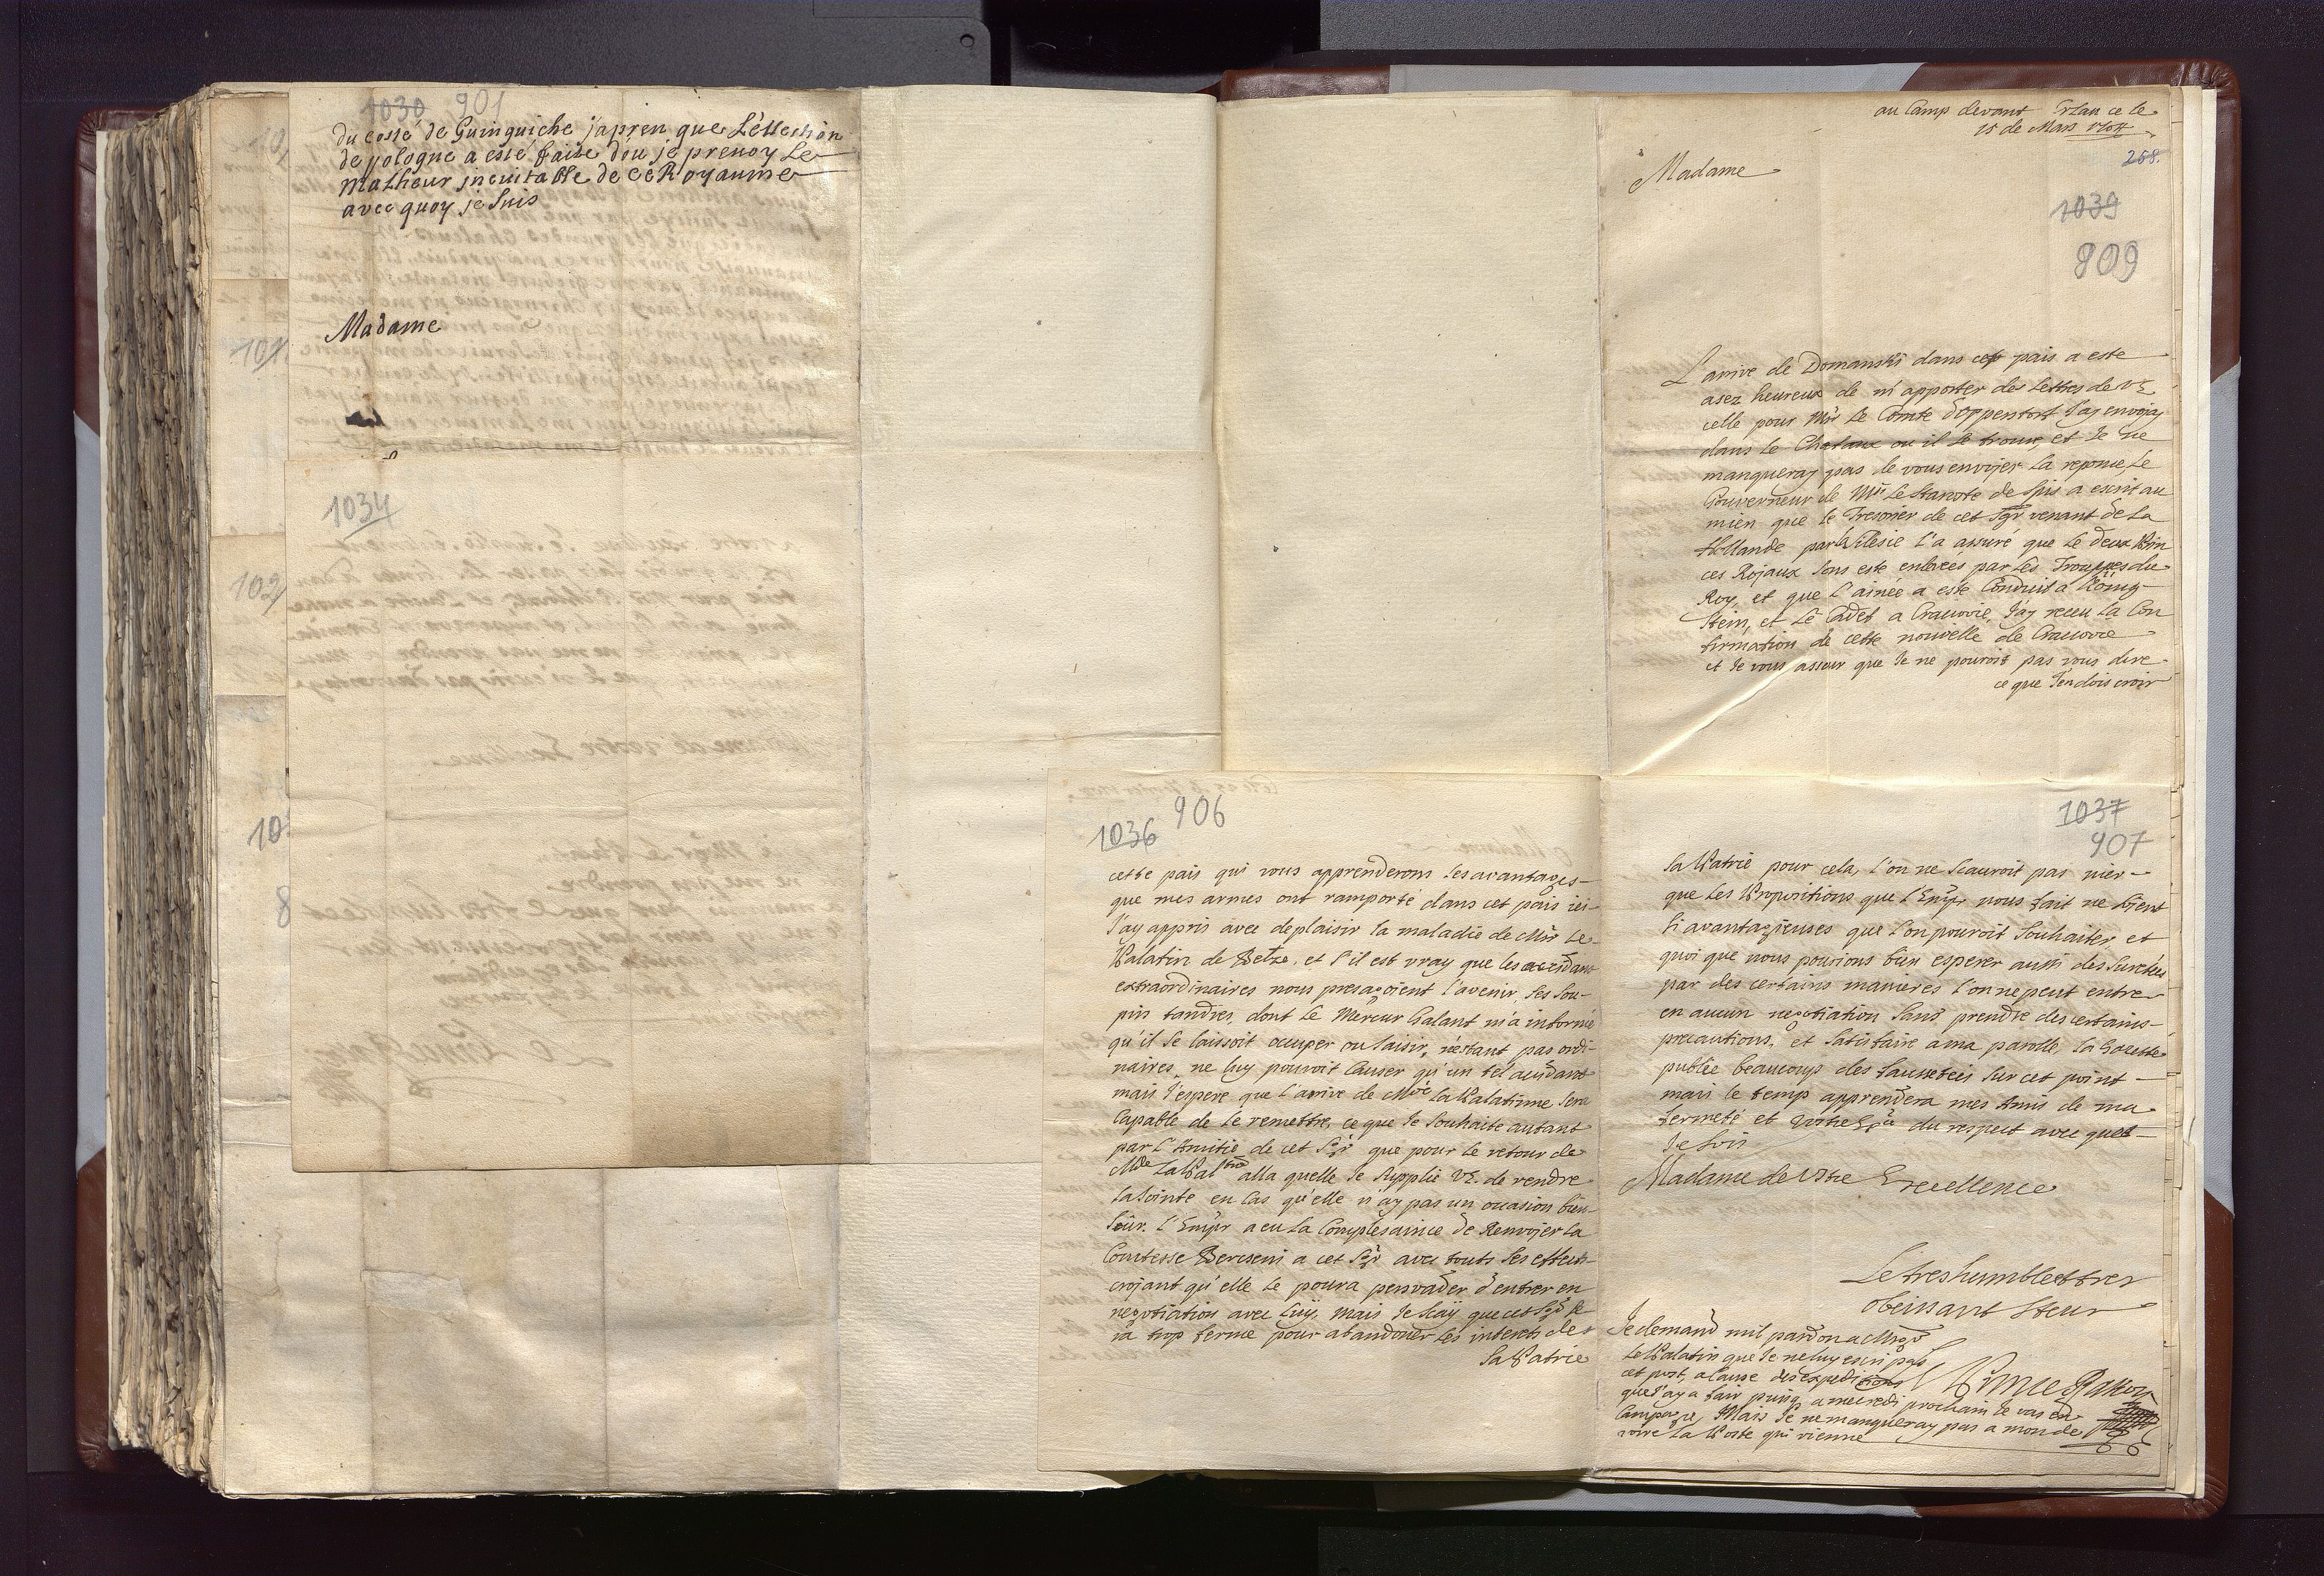 1030 901
du costé de Guinguiche japren que L'éllection
de pologne a esté faite dou je prevoy Le
malheur jneuitable de ce Royaume
avec quoy je suis
Madame
1034
au Camp devant Erlau ce le
15 de Mars 1704
258.
Madame
1039
809
L'arrive de Domanski dans cet pais a este
asez heureux de m'apporter des Lettres de VE
celle pour Mr le Comte d'oppenfort J'ay envojay
dans le Chataux ou il se trouve, et Je ne
manqueray pas de vous envojer la reponse, Le
Gouverneur de Mr Le Staroste de Spis a escrit au
mien que le Tresorier de cet Sgr venant de La
Hollande par la Silesie l'a assuré que le deux Prin
ces Rojaux sons este enlevées par les Trouppes du
Roy, et que l'ainée a este Conduit a König
stein, et Le Cadet a Cracovie, J'ay receu la Con
firmation de cette nouvelle de Cracovie
et Je vous asseur que Je ne pourois pas vous dire
ce que J'en dois croir
10
1036 906
cette pais qui vous apprenderons les avantages
que mes armes ont ramporté dans cet pais ici
J'ay appris avec deplaisir la maladie de Mr Le
Palatin de Belze, et s'il est vray que les accidans
extraordinaires nous presagoient l'avenir, ses sou-
pirs tandres, dont le Mercur Galant m'a informé
qu'il se laissoit ocuper ou saisir, n'estant pas ordi-
naires, ne luy pouvoit Causer qu'un tel acidant
mais J'espere que l'arrive de Mde la Palatinne sera
Capable de le remettre, ce que Je souhaite autant
par l'Amitié de cet Sgr que pour le retour de
Mde La Pal tine alla quelle Je supplie VE. de rendre
la Jointe en Cas qu'elle n'ay pas un occasion bien
seur. l'Empr a eu la Complesaince de Renvojer la
Comtesse Berceni a cet Sgr avec touts ses effects
crojant qu'elle le poura persvader d'entrer en
negotiation avec luy, mais Je sçay que cet Sgr se-
ra trop ferme pour abandoner les interets de
sa Patrie
1037
907
sa Patrie pour cela, l'on ne scauroit pas nier
que les Propositions que l'Empr nous fait ne soient
si avantagieuses que l'on pouroit souhaiter, et
quoi que nous pourions bien esperer aussi des suretées
par des certains manieres l'on ne peut entrer
en aucun negotiation sans prendre des certains
precautions, et satisfaire a ma parolle, la Gazette
publie beaucoup des faussetées sur cet point
mais le temp apprendera mes Amis de ma
fermeté et Votre Exce du respect avec quel
Je suis
Madame de Vtre Excellence
Le tres humble et tres
obeissant Steur
Prince Rakoczy
Je demand mil pardon a Msgr
le Palatin que Je ne luy escri pas
cet post, a cause des expeditions
que J'ay a fair puisq a mecredi prochain Je vas en
Campagne, Mais Je ne manqueray pas a mon de
voire la Poste qui vienne